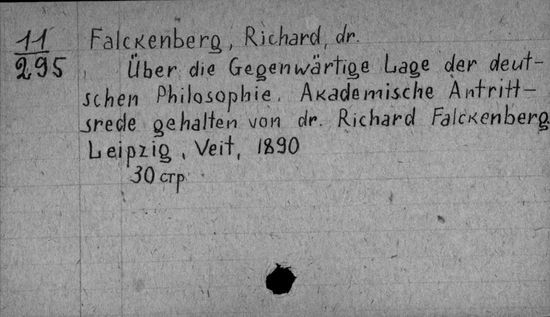 11
295
Falckenberg, Richard, dr.
Über die Gegenwärtige Lage der deut-
schen Philosophie. Akademische Antritt-
srede gehalten von dr. Richard Falckenberg
Leipzig, Veit, 1890
30 стр